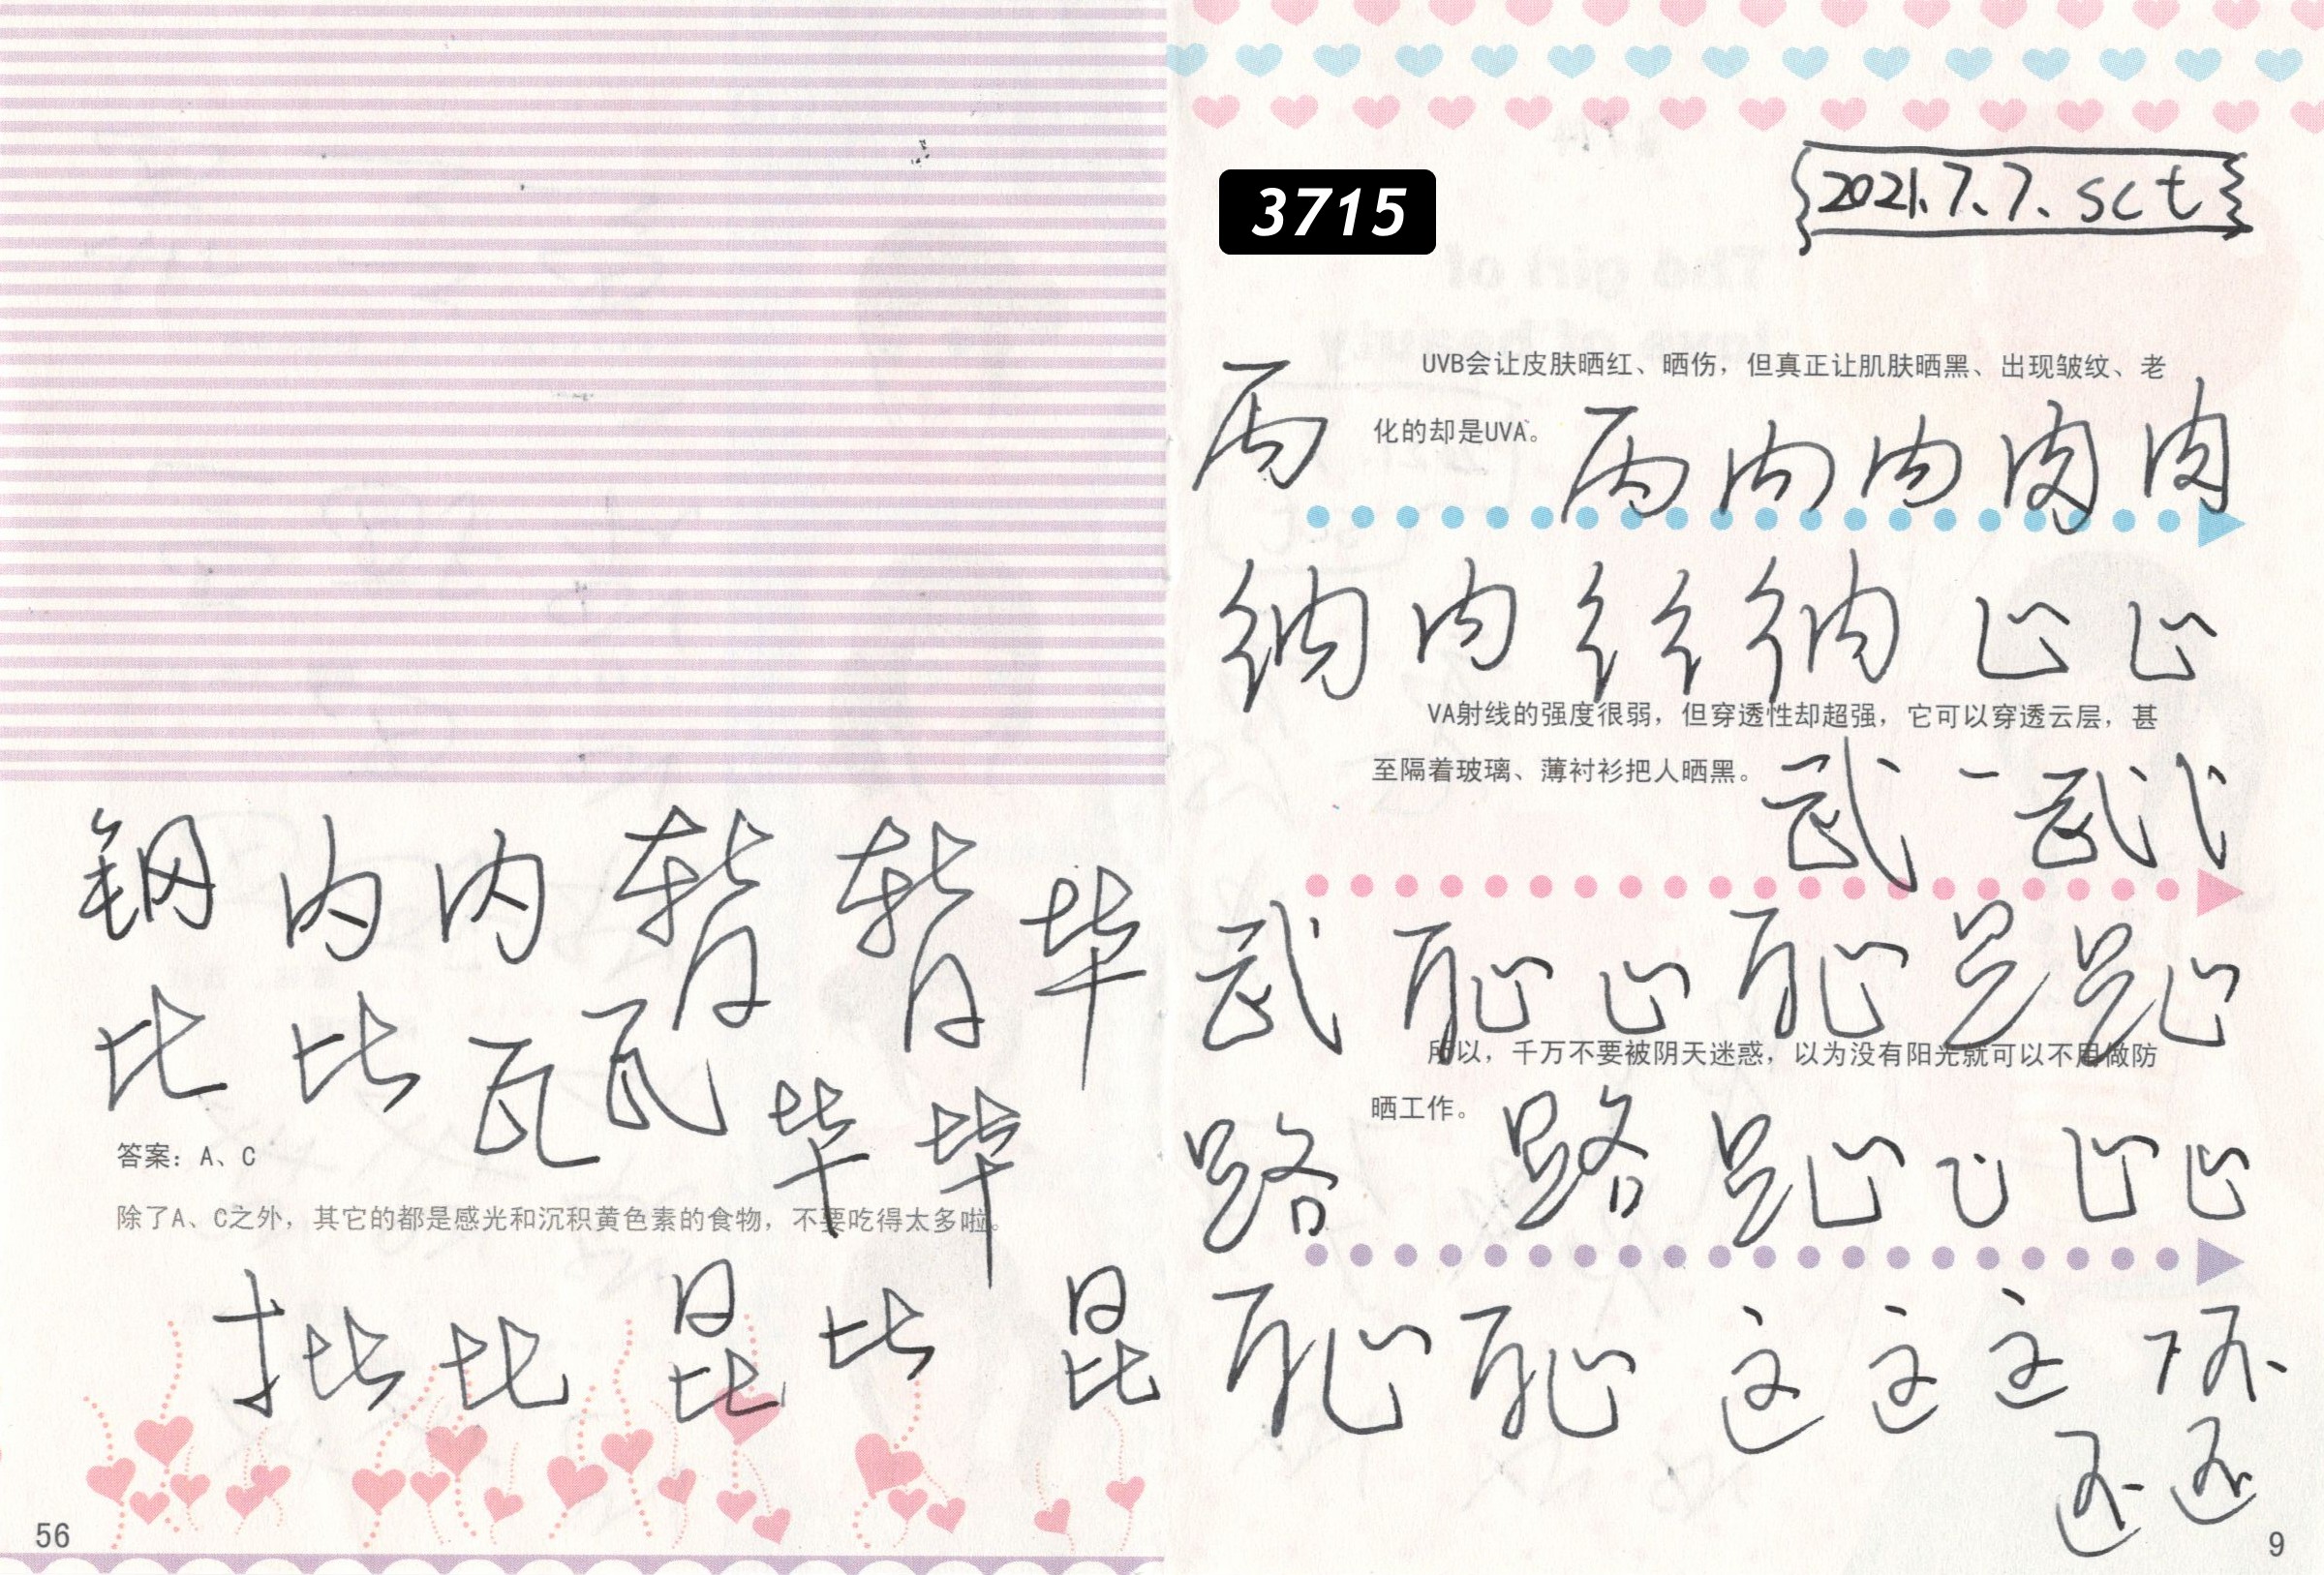 钢 内 内 背 背 毕
比 比 瓦 瓦 毕 毕
答案：A、C
除了A、C之外，其它的都是感光和沉积黄色素的食物，不要吃得太多啦。
批 比 昆 比 昆
56
3715
2021.7.7.sct
UVB会让皮肤晒红、晒伤，但真正让肌肤晒黑、出现皱纹、老
化的却是UVA。
丙 丙 内 内 肉 肉
纳 内 纟 纟 纳 止 止
VA射线的强度很弱，但穿透性却超强，它可以穿透云层，甚
至隔着玻璃、薄衬衫把人晒黑。
武 一 武
武 耻 止 耻 止
所以，千万不要被阴天迷惑，以为没有阳光就可以不用做防
晒工作。
路 路 止 止 止
耻 耻 这 这 这
还 还
9